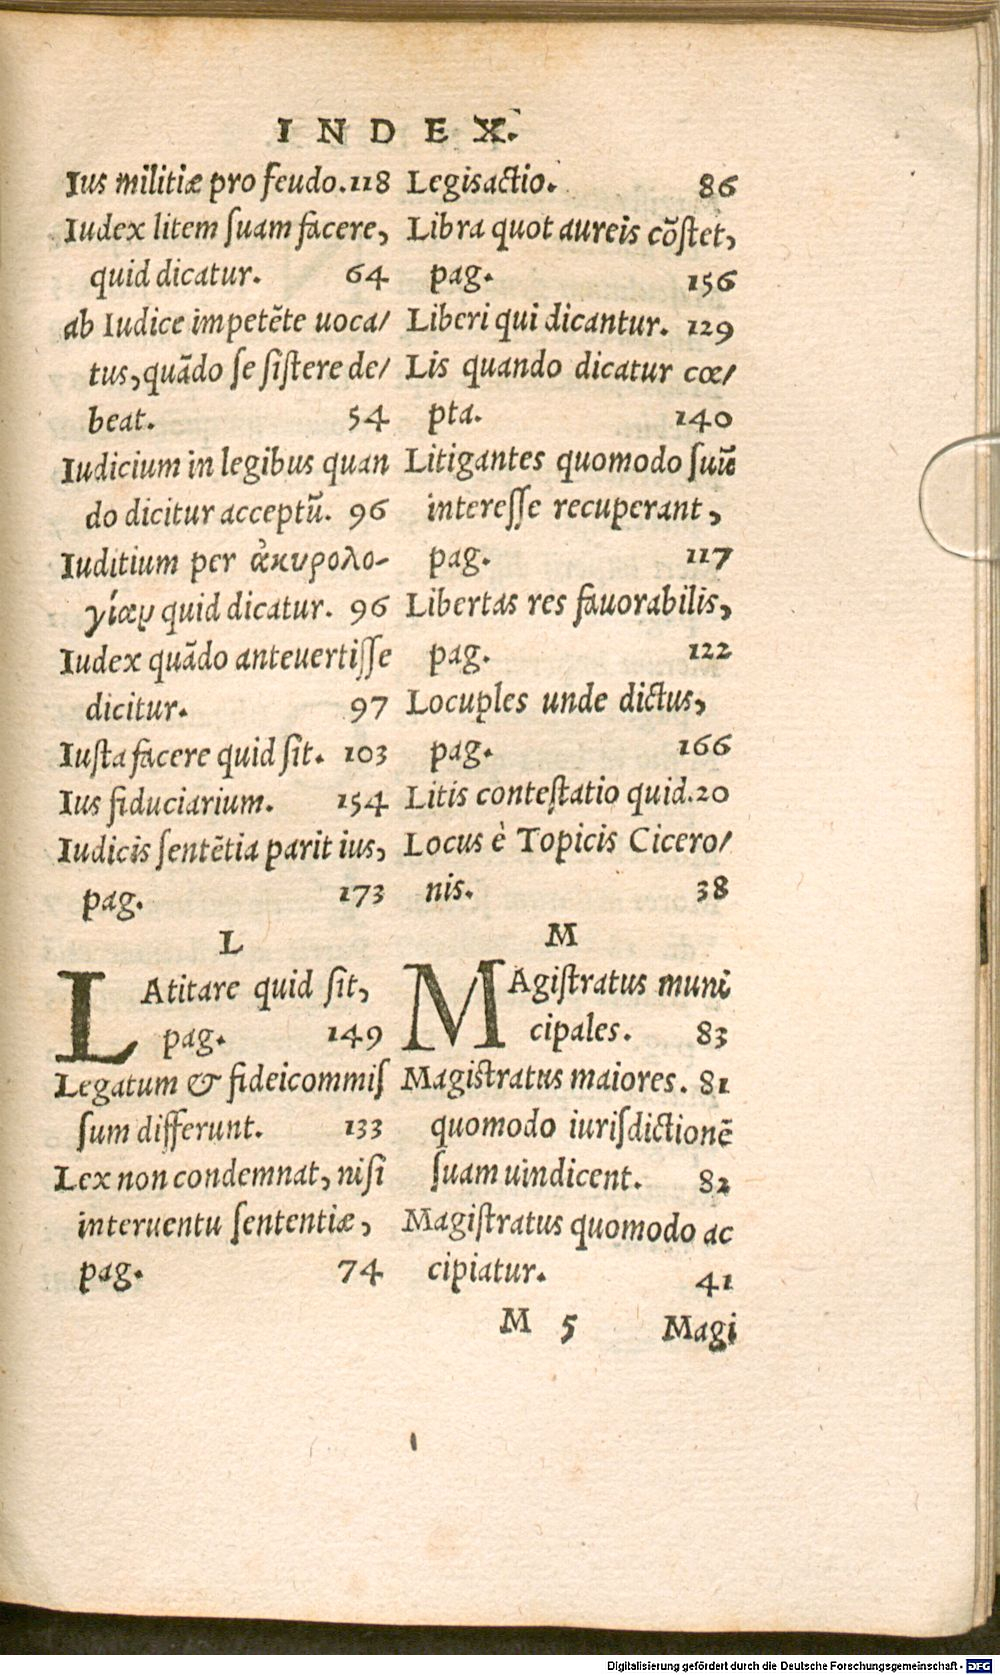 INDEX.
Ius militiæ pro feudo. 118
Iudex litem ſuam facere,
quid dicatur. 64
ab Iudice impetẽte uoca/
tus, quãdo ſe ſiſtere de/
beat. 54
Iudicium in legibus quan
do dicitur acceptũ. 96
Iuditium per ἀκυρολο-
γίαν quid dicatur. 96
Iudex quãdo anteuertiſſe
dicitur. 97
Iuſta facere quid ſit. 103
Ius fiduciarium. 154
Iudicis ſentẽtia parit ius,
pag. 173
L
LAtitare quid ſit,
pag. 149
Legatum & fideicommiſ
ſum differunt. 133
Lex non condemnat, niſi
interuentu ſententiæ,
pag. 74
Legisactio. 86
Libra quot aureis cõſtet,
pag. 156
Liberi qui dicantur. 129
Lis quando dicatur cœ/
pta. 140
Litigantes quomodo ſuũ
intereſſe recuperant,
pag. 117
Libertas res fauorabilis,
pag. 122
Locuples unde dictus,
pag. 166
Litis conteſtatio quid. 20
Locus è Topicis Cicero/
nis. 38
M
MAgiſtratus muni
cipales. 83
Magistratus maiores. 81
quomodo iuriſdictionẽ
ſuam uindicent. 82
Magiſtratus quomodo ac
cipiatur. 41
M 5 Magi
Digitalisierung gefördert durch die Deutsche Forschungsgemeinschaft - DFG